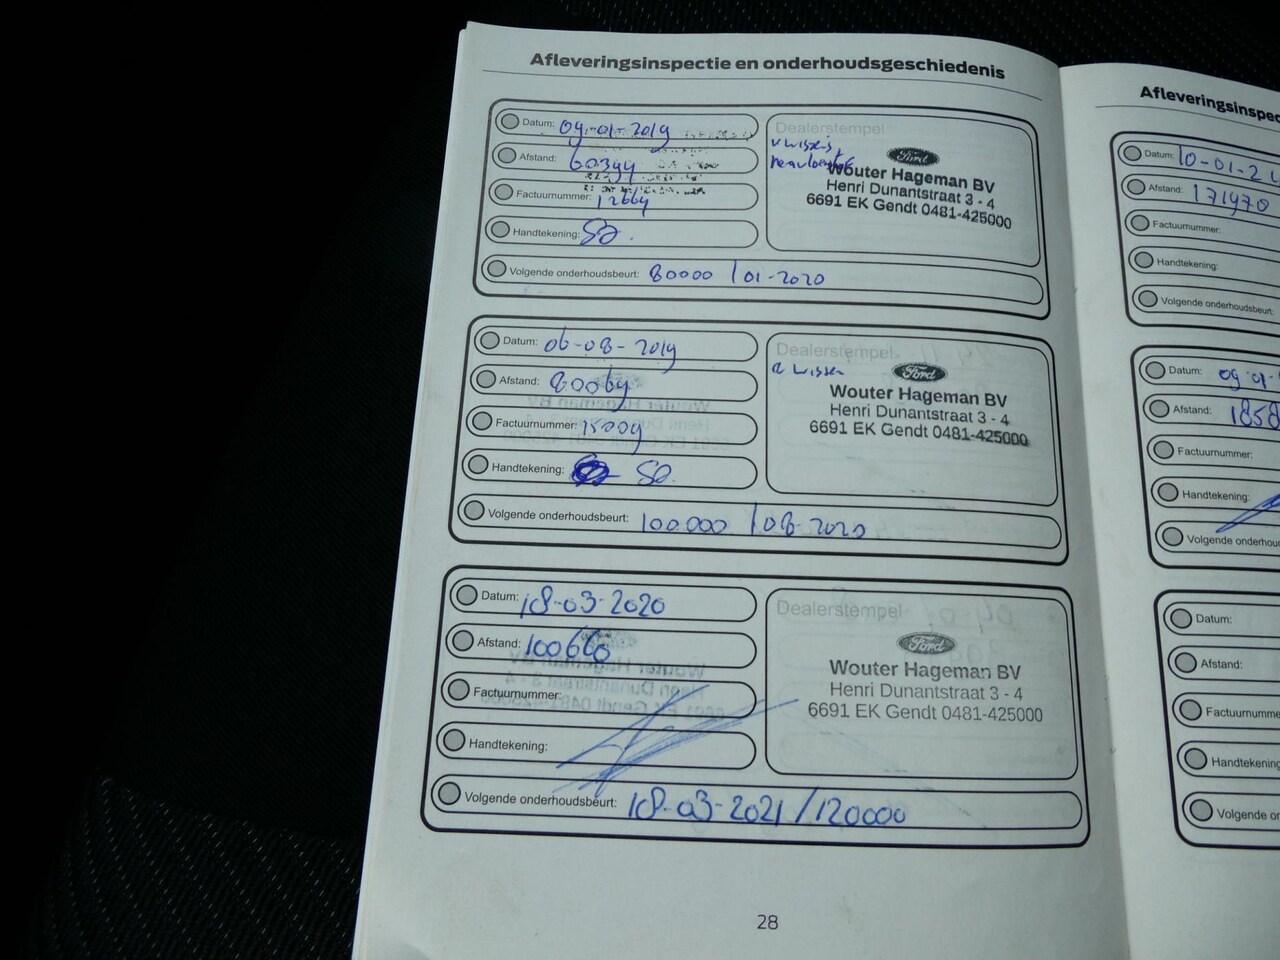 Afleveringsinspectie en onderhoudsgeschiedenis
Datum: 09-01-2019
Afstand: 60399
Factuurnummer: 12664
Handtekening:
Volgende onderhoudsbeurt: 80000 / 01-2020
Dealerstempel
Ford
Wouter Hageman BV
Henri Dunantstraat 3 - 4
6691 EK Gendt 0481-425000
Datum: 06-08-2019
Afstand: 80069
Factuurnummer: 15009
Handtekening:
Volgende onderhoudsbeurt: 100.000 / 08-2020
Dealerstempel
Ford
Wouter Hageman BV
Henri Dunantstraat 3 - 4
6691 EK Gendt 0481-425000
Datum: 18-03-2020
Afstand: 100660
Factuurnummer:
Handtekening:
Volgende onderhoudsbeurt: 18-03-2021 / 120000
Dealerstempel
Ford
Wouter Hageman BV
Henri Dunantstraat 3 - 4
6691 EK Gendt 0481-425000
28
Afleveringsinspec
Datum: 10-01-2
Afstand: 171970
Factuurnummer:
Handtekening:
Volgende onderhoudsbeurt:
Datum: 09-01-
Afstand: 1858
Factuurnummer:
Handtekening:
Volgende onderhou
Datum:
Afstand:
Factuurnumme
Handtekening
Volgende on